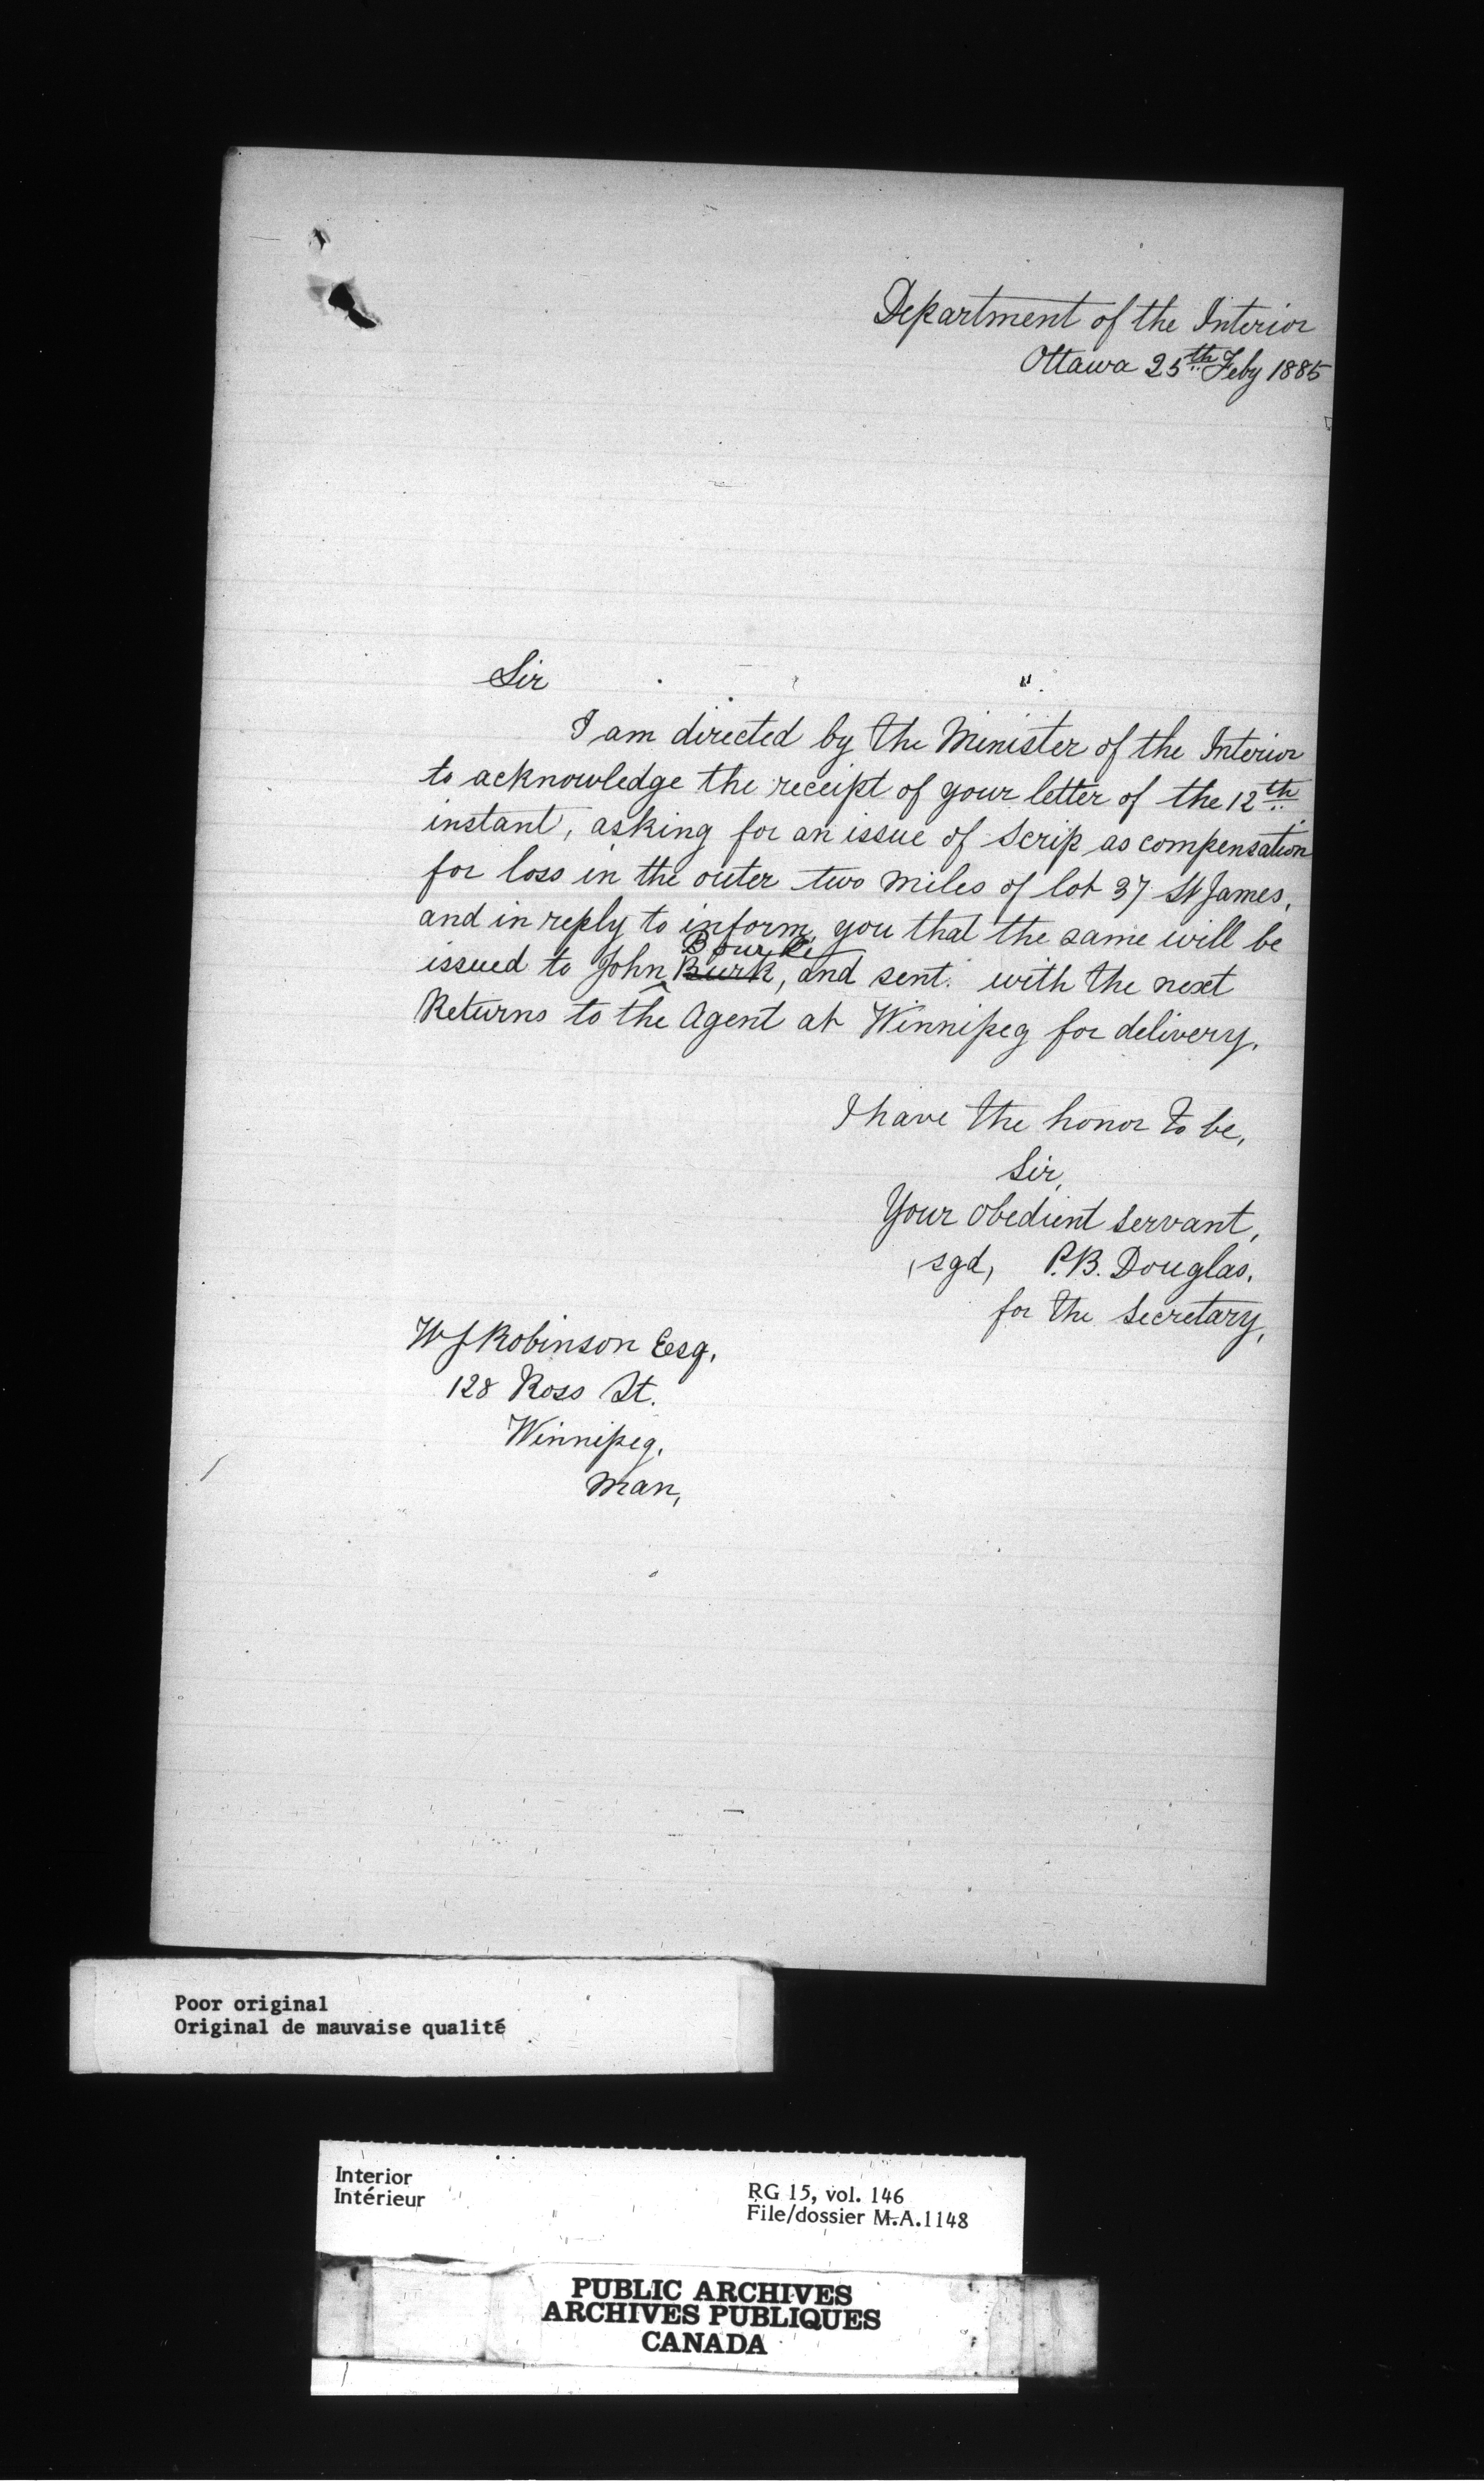 Department of the Interior
Ottawa 25th Feby 1885
Sir
I am directed by the Minister of the Interior
to acknowledge the receipt of your letter of the 12th
instant, asking for an issue of Scrip as compensation
for loss in the outer two miles of lot 37 St James,
and in reply to inform you that the same will be
Bourke
issued to John Burk, and sent with the next
Returns to the Agent at Winnipeg for delivery.
I have the honor to be,
Sir,
Your obedient servant,
(sgd) P.B. Douglas.
for the Secretary,
W J Robinson Esq.
128 Ross St.
Winnipeg.
Man,
Poor original
Original de mauvaise qualité
Interior
Intérieur
RG 15, vol. 146
File/dossier M.A.1148
PUBLIC ARCHIVES
ARCHIVES PUBLIQUES
CANADA